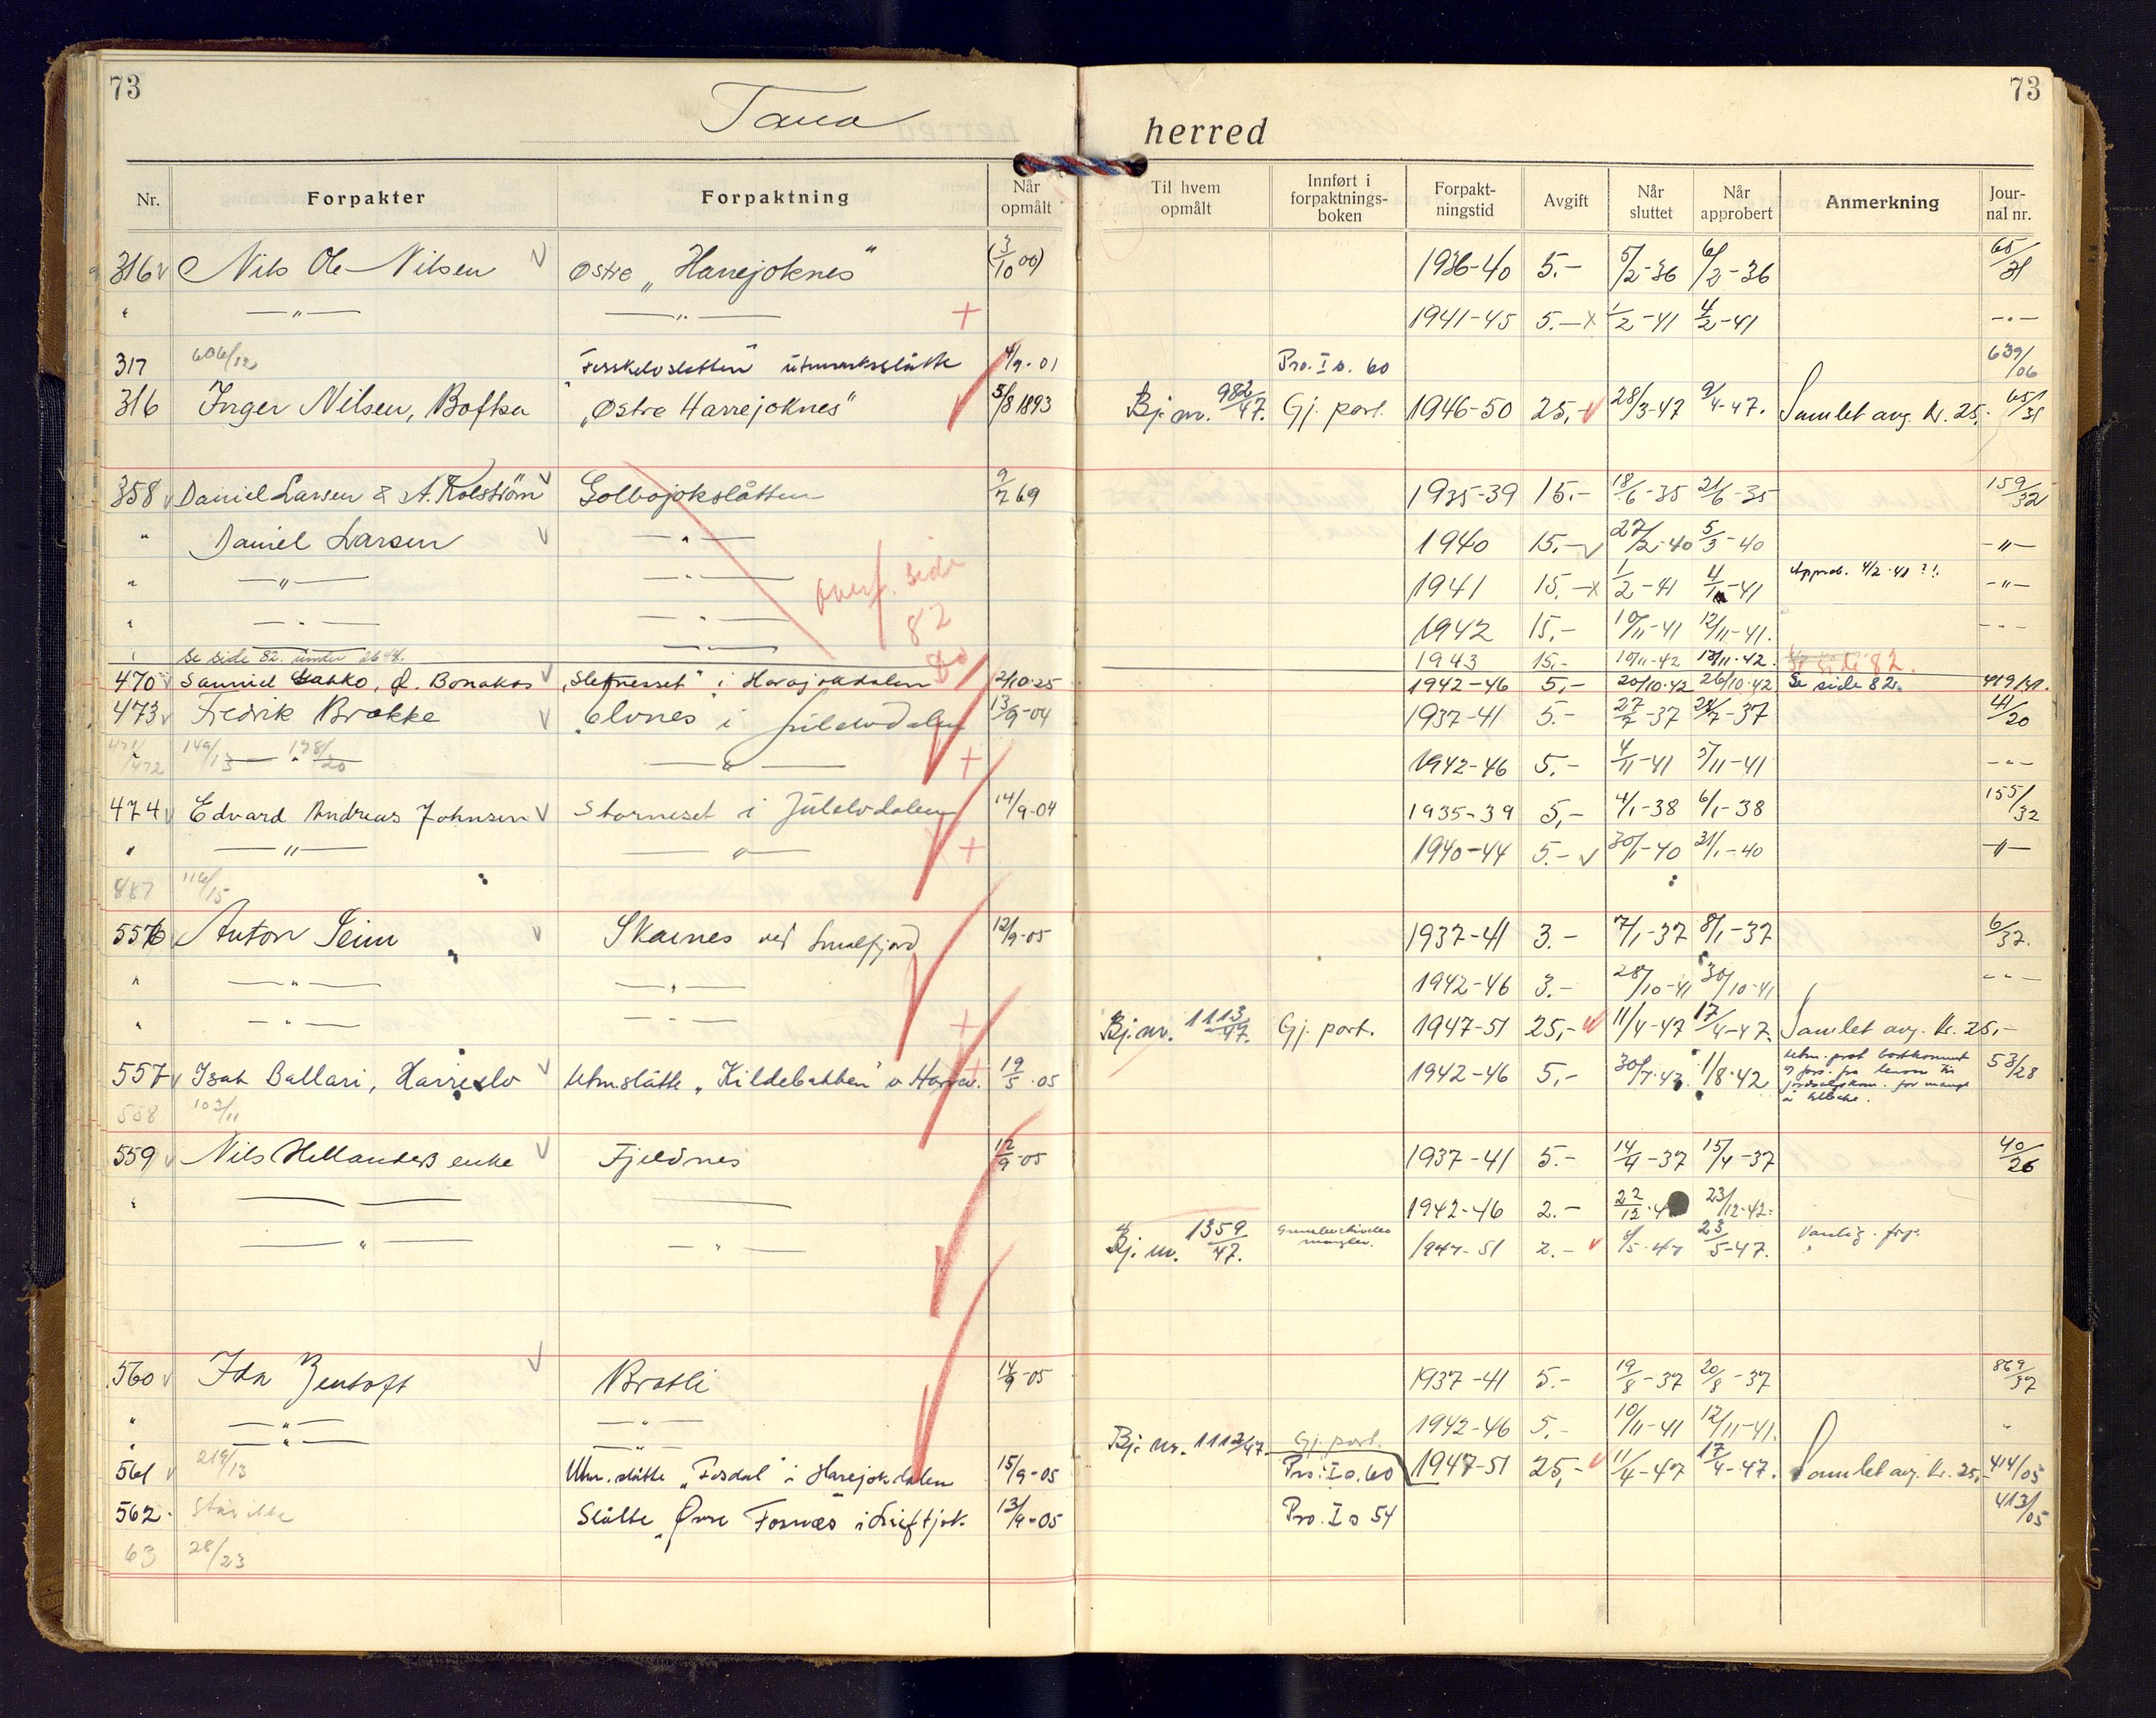 73
73
Tana herred
Nr. Forpakter Forpaktning Når opmålt Til hvem opmålt Innført i forpaktnings- boken Forpakt- ningstid Avgift Når sluttet Når approbert Anmerkning Jour- nal nr.
316 Nils Ole Nilsen Østre „Harrejoknes" (3/10 00) 1936-40 5.- 5/2-36 6/2-36 65/31
" —"— —"— + 1941-45 5.- x 1/2-41 4/2-41 -"-
317 606/12 utmarksslåtte 4/9-01 Pro. I s. 60 639/06
316 Inger Nilsen, Boftsa „Østre Harrejoknes" 5/8 1893 Bj. nr. 982/47. Gj. part. 1946-50 25,- 28/3-47 9/4-47. Samlet avg. kr. 25,- 65/31
358 Daniel Larsen & A. Kolström Golbojokslåtten 9/7 69 1935-39 15.- 18/6-35 21/6-35 159/32
" Daniel Larsen —"— 1940 15.- 27/2-40 5/3-40 -"-
" —"— —"— overf. side 82 1941 15.- x 1/2-41 4/-41 Approb. 4/2-41 ?! -"-
" —"— —"— 1942 15,- 10/11-41 12/11-41. -"-
" se side 82. under 2648. —"— 1943 15,- 10/11-42 12/11-42. Se side 82.
470 Samuel , Ø. Bonakas „Sletnesset" i Harejokdalen 2/10-25 1942-46 5,- 20/10-42 26/10-42 Se side 82. 419/41.
473 Fredrik Brække „Elvnes i Julelvdalen 13/9-04 1937-41 5.- 27/7-37 28/7-37 41/20
471/472 149/13 —"— 198/20 —"— + 1942-46 5.- 4/11-41 5/11-41 -"-
474 Edvard Andreas Johnsen Storneset i Julelvdalen 14/9-04 1935-39 5,- 4/1-38 6/1-38 155/32
" —"— —"— + 1940-44 5.- 30/1-40 31/1-40 -"-
887 116/15
556 Anton Seim Skarnes ved Smalfjord 12/9-05 1937-41 3.- 7/1-37 8/1-37 6/37.
" —"— —"— 1942-46 3.- 28/10-41 30/10-41 -"-
" —"— —"— + Bj. nr. 1113/47. Gj. part. 1947-51 25,- 11/4-47 17/4-47. Samlet avg. kr. 25,-
557 Isak Ballari, Harrelv Utmslåtte „Kildebakken" v Harrev. 19/5-05 1942-46 5,- 30/7-42. 1/8-42 53/28
558 103/11
559 Nils Hellanders enke Fjeldnes 12/9-05 1937-41 5.- 14/4-37 15/4-37 40/26
" —— —— 1942-46 2.- 22/12-4 23/12-42.
—"— —"— Bj. nr. 1359/47. mangler. 1947-51 2.- 8/5-47 23/5-47. Vanlig.
560 Ida Zentoft Bratli 14/9-05 1937-41 5.- 19/8-37 20/8-37 869/37
" —"— —"— 1942-46 5.- 10/11-41 12/11-41. "
" —"— —"— Bj. nr. 1112/47. Gj. part. 1947-51 25,- 11/4-47 17/4-47. Samlet avg. kr. 25,-
561 219/13 Utm. slåtte „Fosdal" i Harejokdalen 15/9-05 Pro. I s. 60 414/05
562. Står ikke Slåtte „Øvre Fosnæs i Luftjok. 13/9-05 Pro. I s 54 413/05
63 28/23